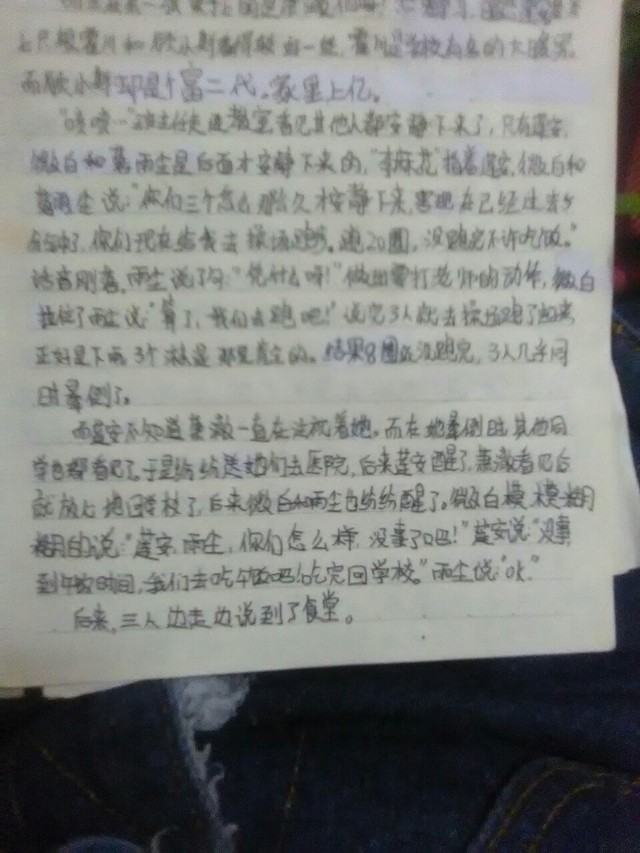 上只有霍川和欧小野看得顺自一些,霍川是学校有名的大混混,
而欧小野却是个富二代。家里上亿。
"咳咳…"班主任走进教室看见其他人都安静下来了,只有莲安,
微白和葛雨尘是后面才安静下来的,"李麻花"指着莲安,微白和
葛雨尘说:"你们三个怎么那么久才安静下来,害现在已经过去
分钟了,你们现在给我去操场跑步。跑20圈,没跑完不许吃饭。"
话音刚落,雨尘说了句:"凭什么呀!"做出要打老师的动作,微白
拉住了雨尘说:"算了,我们去跑吧!"说完3人就去操场跑了起来,
正好是下雨3个 都是 的。结果8圈还没跑完,3人几乎同
时晕倒了。
而莲安不知道萧澈一直在注视着她。而在她晕倒时其他同
学也都看见了。于是纷纷送她们去医院,后来莲安醒了,萧澈看见后
就放心地回学校了,后来微白和雨尘也纷纷醒了。微白模模糊
糊的说:"莲安,雨尘,你们怎么样,没事了吧!"莲安说:"没事,
到午饭时间,我们去吃午饭吧!吃完回学校。"雨尘说:"ok."
后来,三人边走边说到了食堂。